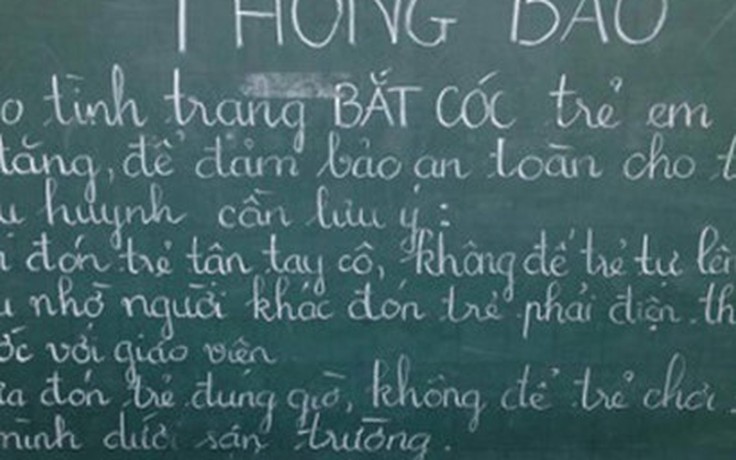 THÔNG BÁO
o tình trạng BẮT CÓC trẻ em
tăng, để đảm bảo an toàn cho t
u huynh cần lưu ý:
i đón trẻ tận tay cô, không để trẻ tự lên
u nhờ người khác đón trẻ phải điện th
ớc với giáo viên
ưa đón trẻ đúng giờ, không để trẻ chơi
mình dưới sân trường.